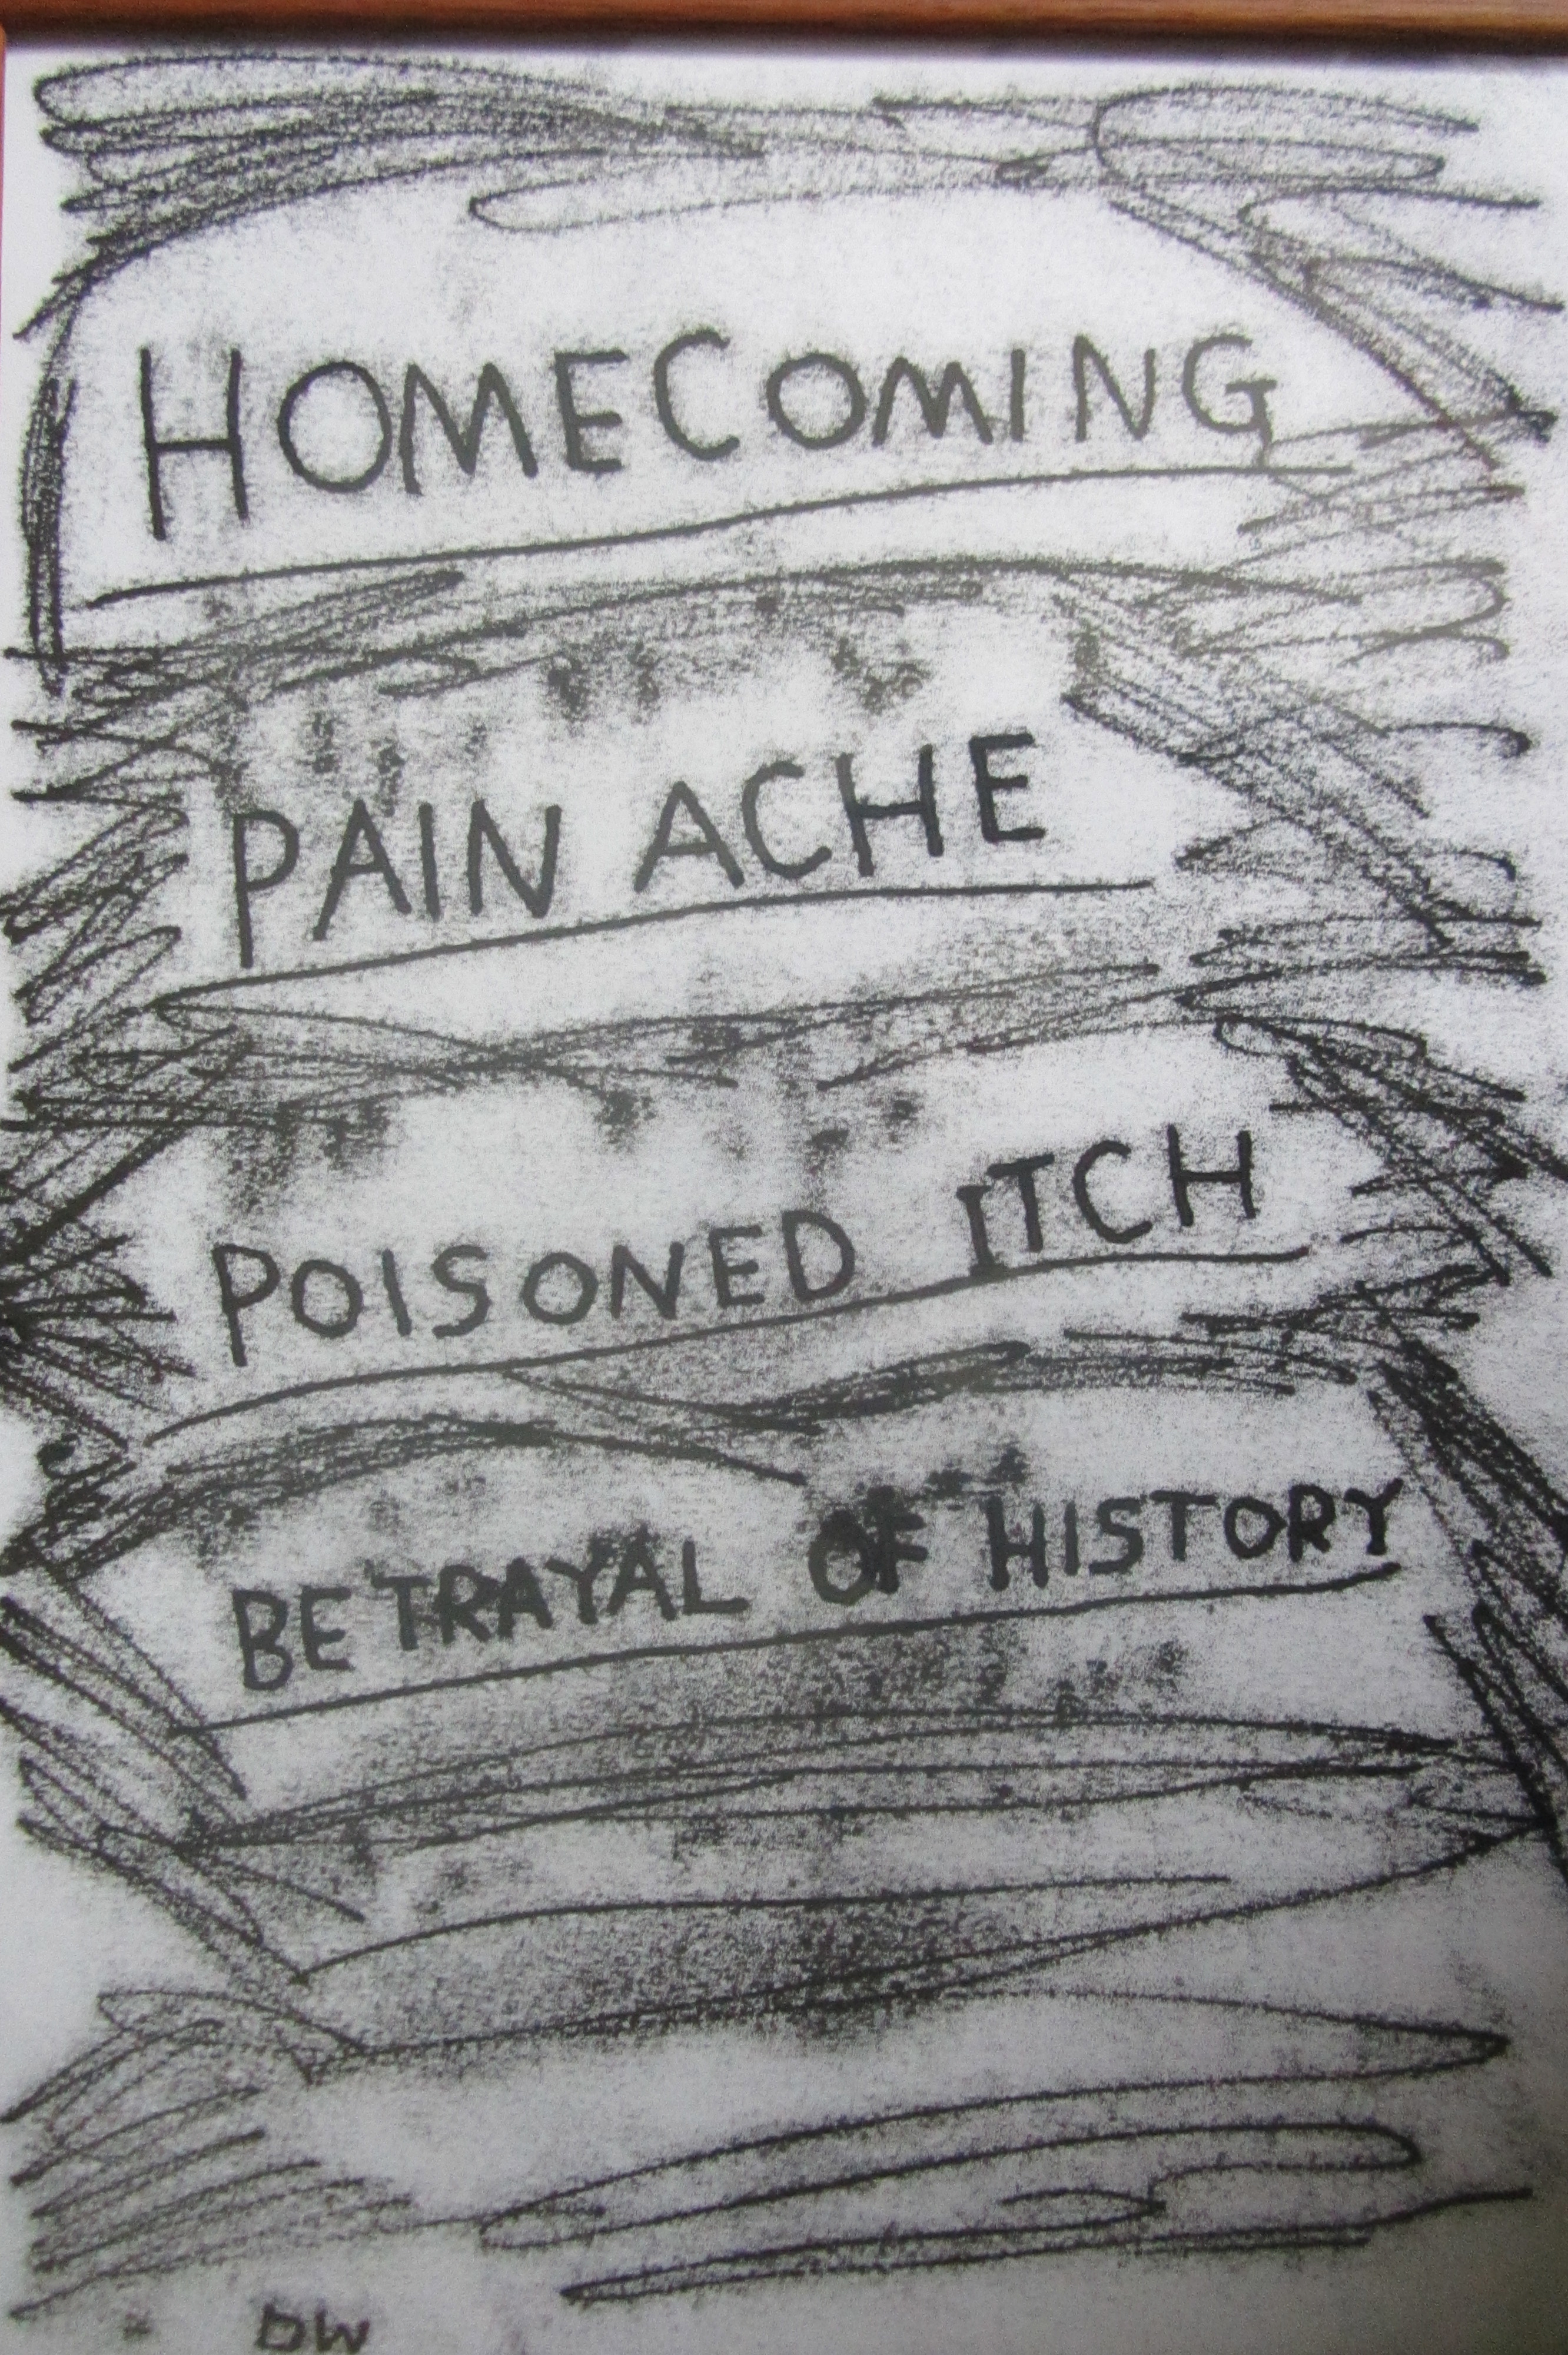 HOMECOMING
PAIN ACHE
POISONED ITCH
BETRAYAL OF HISTORY
DW